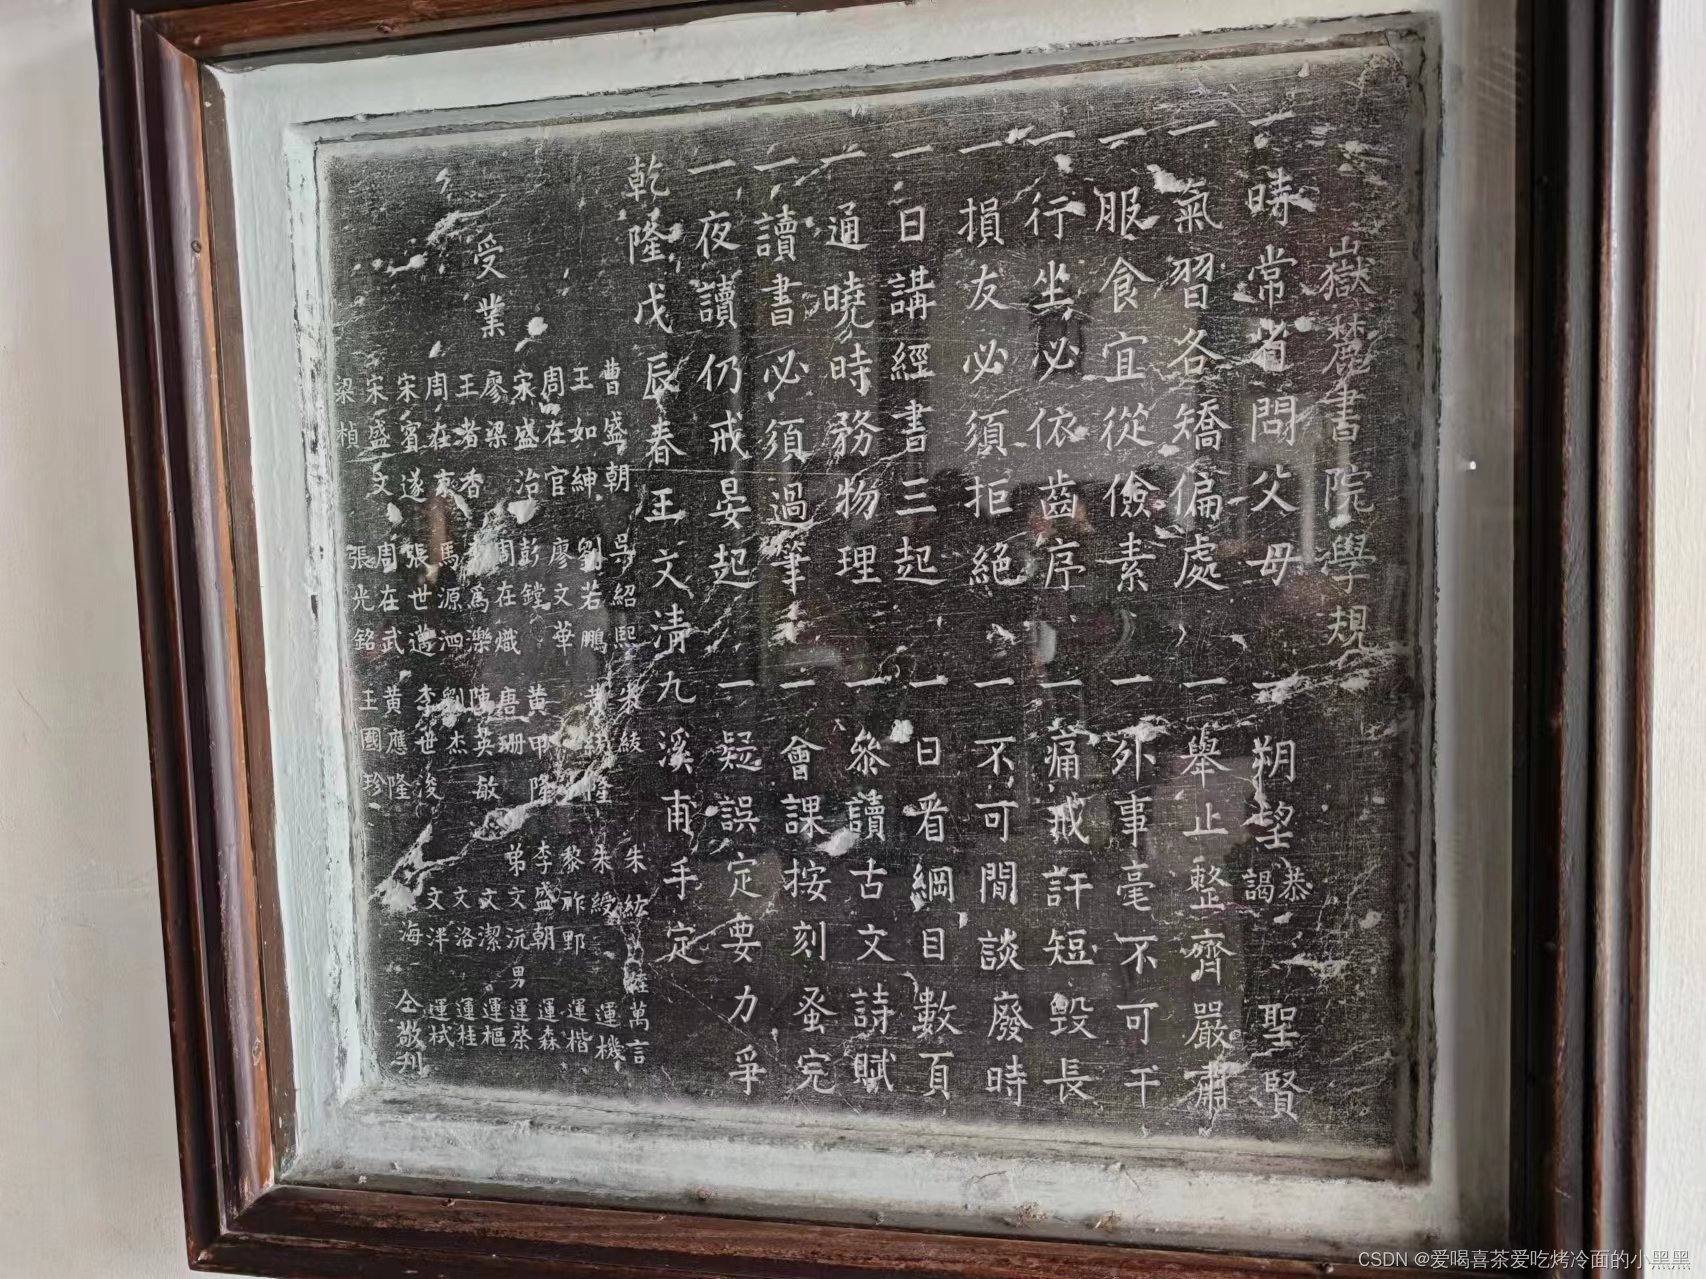 嶽麓書院學規
一時常省問父母 一朔望恭謁聖賢
一氣習各矯偏處 一舉止整齊嚴肅
一服食宜從儉素 一外事毫不可干
一行坐必依齒序 一痛戒訐短毀長
一損友必須拒絕 一不可閒談廢時
一日講經書三起 一日看綱目數頁
一通曉時務物理 一叅讀古文詩賦
一讀書必須過筆 一會課按刻蚤完
一夜讀仍戒晏起 一疑誤定要力爭
乾隆戊辰春王文清九溪甫手定
受業
曹盛朝 吳紹熙 朱綾 朱紘 萬言
王如紳 劉若鵬 黄隆 朱綬 運機
周在官 廖文華 黎祚野 運楷
宋盛治 彭鏜 黄甲隆 李盛朝 運森
廖梁 周在熾 唐珊 弟文沅 男運棨
王者香 爲樂 陳英敏 文潔 運樞
周在 馬源泗 劉杰 文洛 運桂
宋賓遂 張世邁 李世浚 文洋 運栻
宋盛文 周在武 黄應隆 海 仝敬刋
梁楨 張光銘 王國珍
CSDN @爱喝喜茶爱吃烤冷面的小黑黑